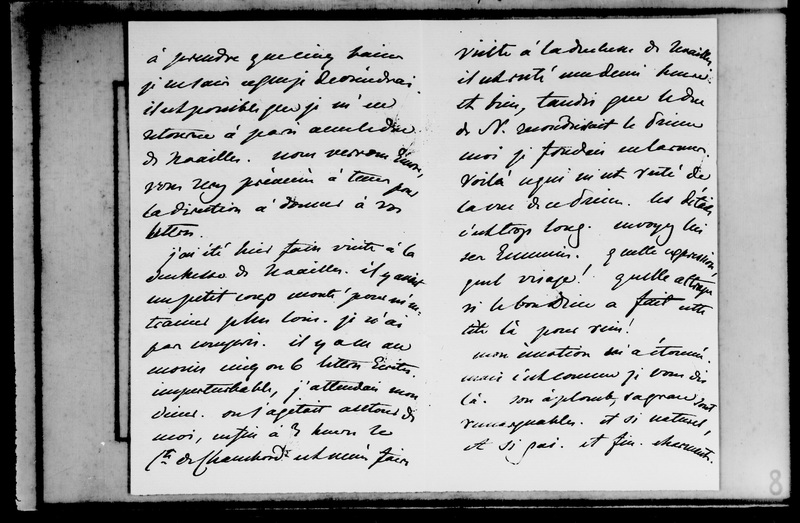 à prendre que cinq bains
je ne sais ce que je deviendrai.
il est possible que je m'en
retourne à paris avec le duc
de Noailles. nous verrons
vous serez prévenu à temps pour
la direction à donner à vos
lettres.
j'ai été hier faire visite à la
duchesse de Noailles. il y avait
un petit coup monté pour m'en-
trainer plus loin. je n'ai
pas compris. il y a eu au
moins cinq ou 6 lettres écrites.
imperturbable, j'attendais mon
on s'agitait autour de
moi, enfin à 3 heures le
Cte de Chambord est venu faire
visite à la duchesse de Noailles
il est resté une demi heure.
et bien, tandis que le duc
de N. le
moi je fondais en larmes.
Voilà ce qui m'est resté de
la vue de ce les détails
c'est trop long.
ses quelle expression,
quel visage! quelle
si le bon Dieu a fait cette
tête là pour rien!
mon émotion m'a étonné.
mais c'est comme je vous dis
là. son aplomb, sa grace sont
remarquables. et si naturel,
et si gai. et fin. charmant.
8